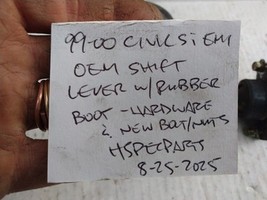 99-00 CIVIC Si EM1
OEM SHIFT
LEVER W/RUBBER
BOOT - HARDWARE
& NEW BOLT/NUTS
HSPECPARTS
8-25-2025